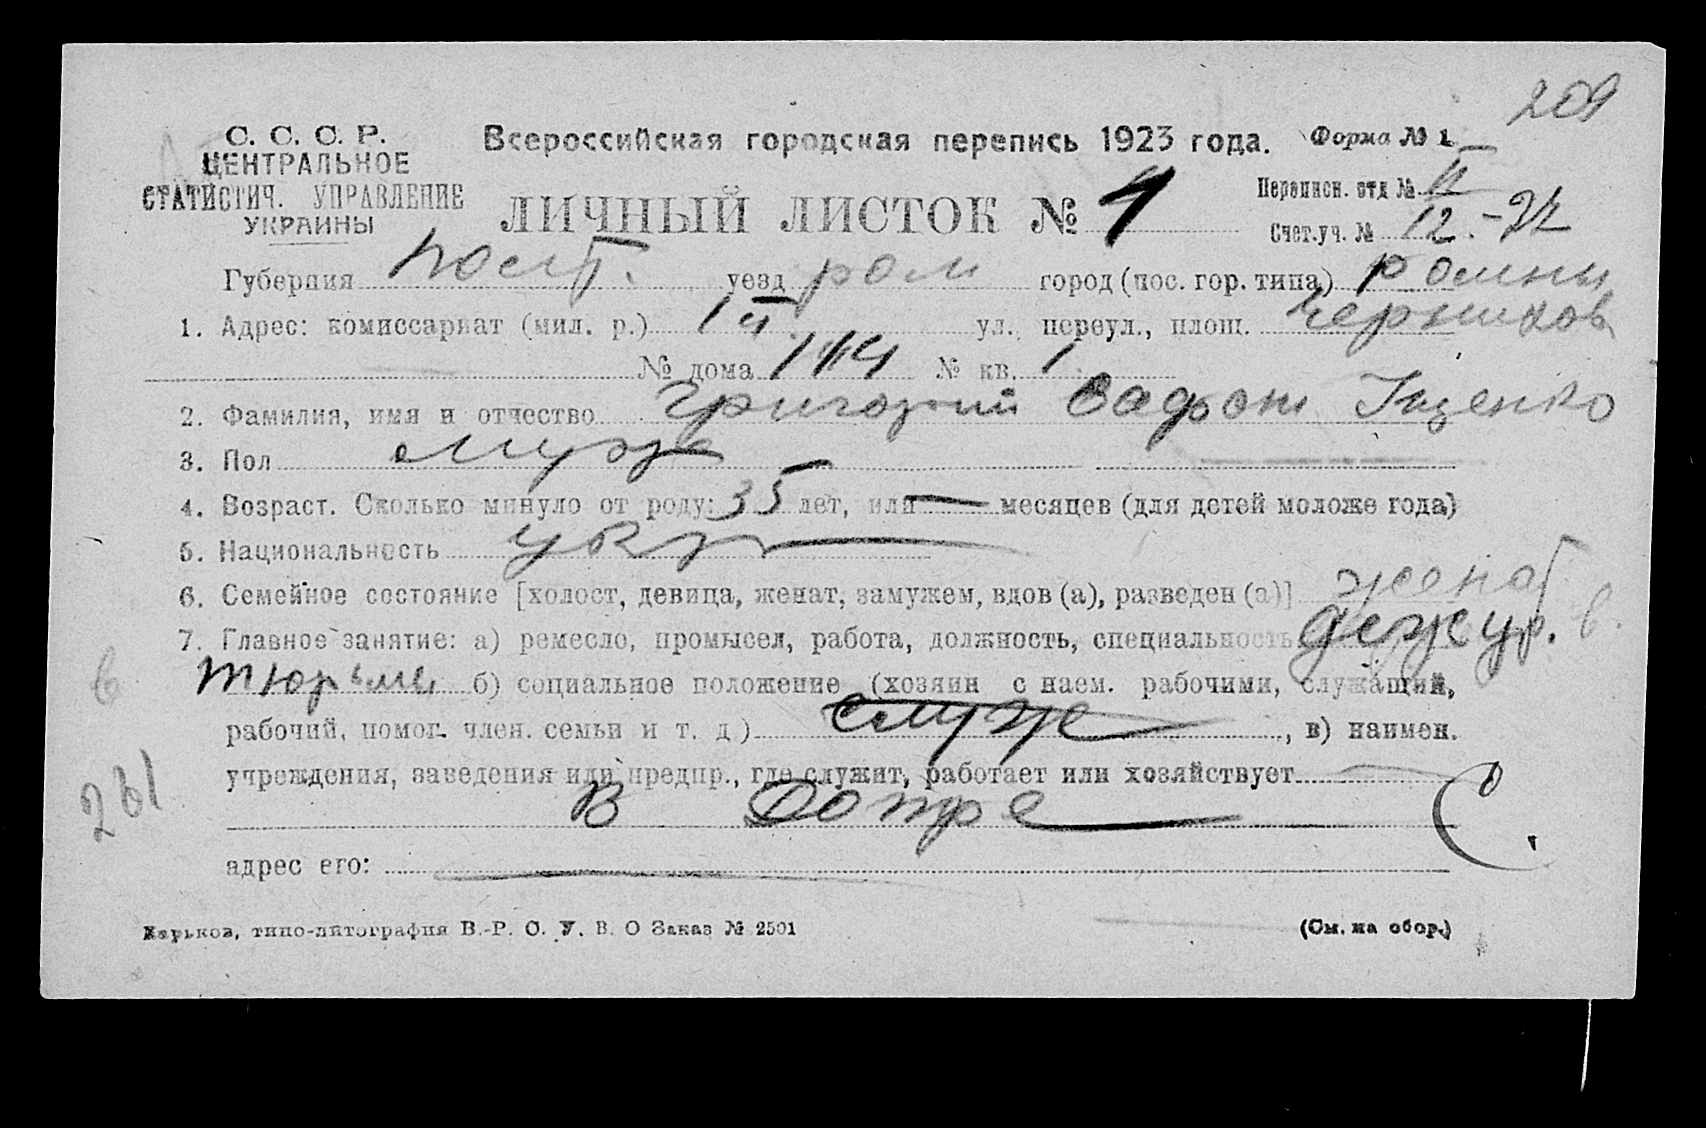 209
С. С. С. Р.
ЦЕНТРАЛЬНОЕ
СТАТИСТИЧ. УПРАВЛЕНИЕ
УКРАИНЫ
Всероссийская городская перепись 1923 года. Форма № 1.
ЛИЧНЫЙ ЛИСТОК №
Переписн. отд № II
Счет.уч. № 12.
Губерния Полт. уезд ром город (пос. гор. типа) ромны
1. Адрес: комиссариат (мил. р.) 1й ул., переул., площ.
№ дома № кв. 1
2. Фамилия, имя и отчество Григорий Іщенко
3. Пол муж
4. Возраст. Сколько минуло от роду: 35 лет, или — месяцев (для детей моложе года)
5. Национальность укр
6. Семейное состояние [холост, девица, женат, замужем, вдов (а), разведен (а)] женат
7. Главное занятие: а) ремесло, промысел, работа, должность, специальность дежур. в.
тюрьмы б) социальное положение (хозяин с наем. рабочими, служащий,
рабочий, помог. член. семьи и т. д) служ , в) наимен.
учреждения, заведения или предпр., где служит, работает или хозяйствует
в Допре С
адрес его: —
261
Харьков, типо-литография В.-Р. С. У. В. О Заказ № 2501 (См. на обор.)